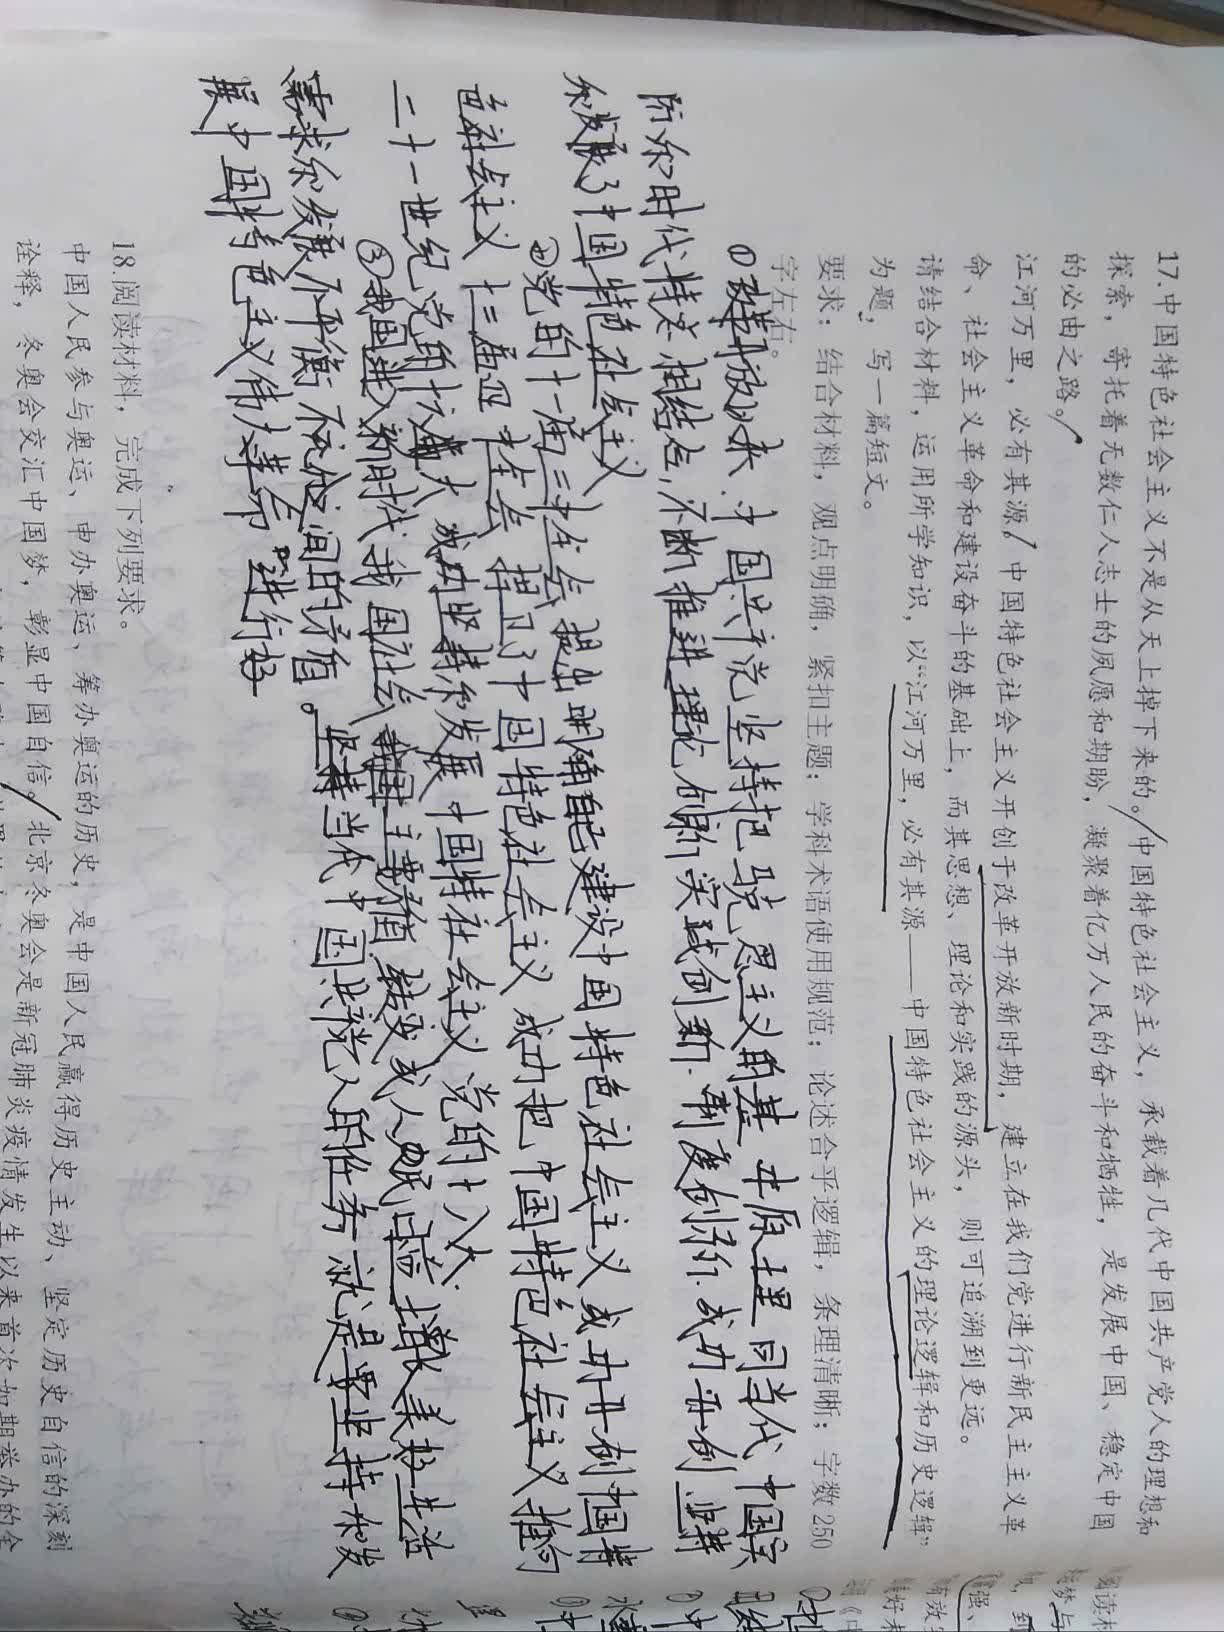 17.中国特色社会主义不是从天上掉下来的。中国特色社会主义，承载着几代中国共产党人的理想和
探索，寄托着无数仁人志士的夙愿和期盼，凝聚着亿万人民的奋斗和牺牲，是发展中国、稳定中国
的必由之路。
江河万里，必有其源。中国特色社会主义开创于改革开放新时期，建立在我们党进行新民主主义革
命、社会主义革命和建设奋斗的基础上，而其思想、理论和实践的源头，则可追溯到更远。
请结合材料，运用所学知识，以“江河万里，必有其源——中国特色社会主义的理论逻辑和历史逻辑”
为题，写一篇短文。
要求：结合材料，观点明确，紧扣主题；学科术语使用规范；论述合乎逻辑，条理清晰；字数250
字左右。
①改革开放以来，中国共产党坚持把马克思主义的基本原理同当代中国实
际和时代特关相结合，不断推进理论创新实践创新.制度创新.成功开创坚持
和发展了中国特色社会主义
②党的十一届三中全会提出明确自能建设中国特色社会主义成功开创中国特
色社会主义 十三届四中全会捍卫了中国特色社会主义成功把中国特色社会主义推向
二十一世纪党的十六大成功坚持和发展中国特社会主义党的十八大
③我国进入新时代我国社会主要矛盾转变成人民日益增长美好生活
需求和发展不平衡不充分之间的矛盾。坚持当代中国共产党人的任务就是要坚持和发
展中国特色主义伟大革命进行好
18.阅读材料，完成下列要求。
中国人民参与奥运、申办奥运、筹办奥运的历史，是中国人民赢得历史主动、坚定历史自信的深刻
诠释，冬奥会交汇中国梦，彰显中国自信。北京冬奥会是新冠肺炎疫情发生以来首次如期举办的全